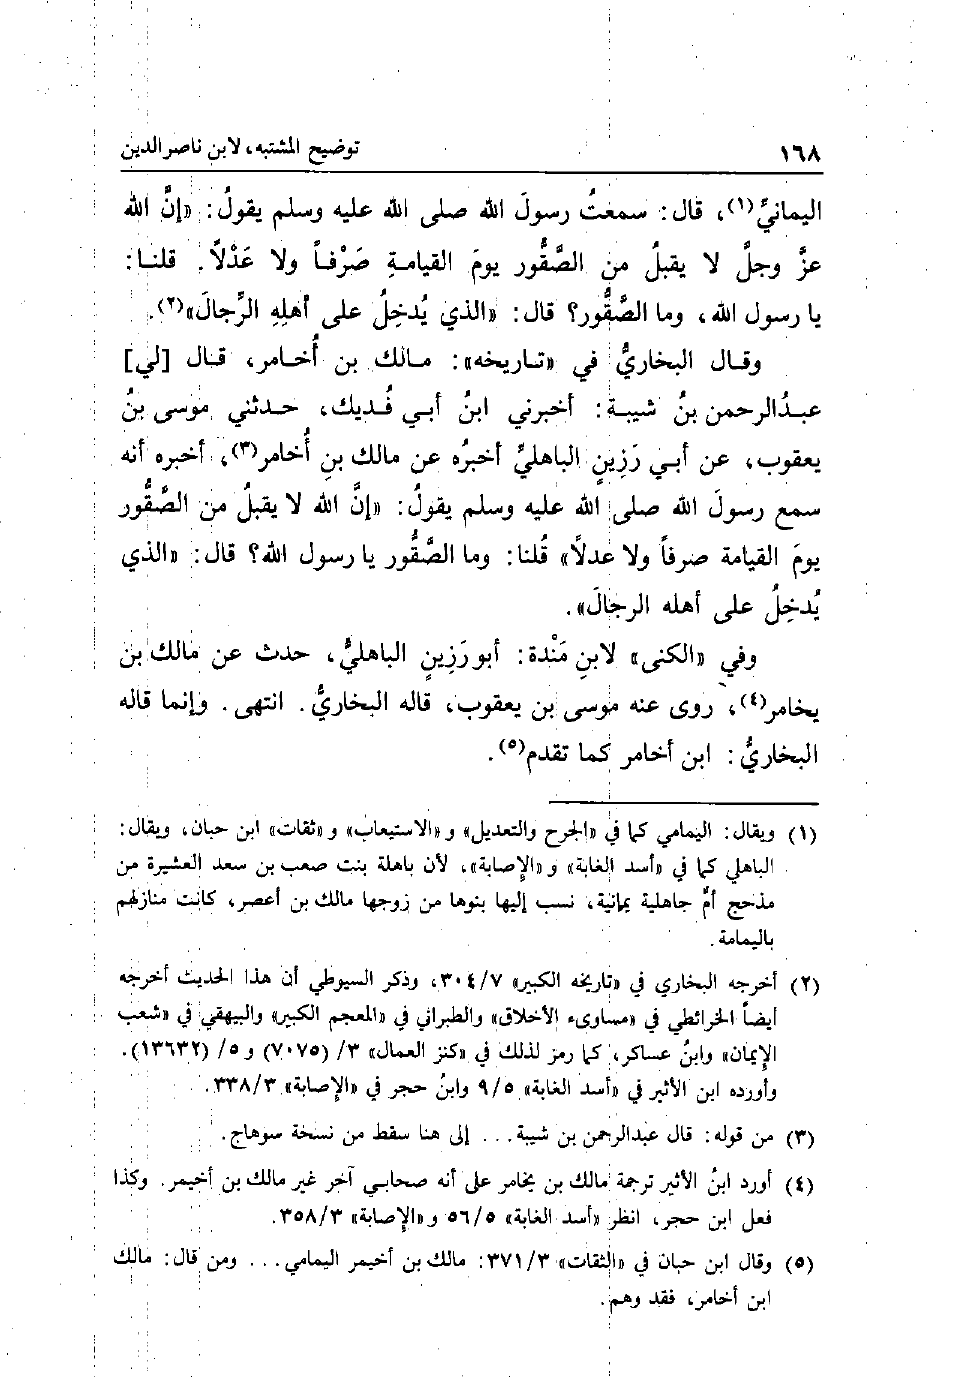 ١٦٨ توضيح المشتبه، لابن ناصر الدين
اليمانيِّ(١)، قال: سمعتُ رسولَ الله صلى الله عليه وسلم يقولُ: «إنَّ الله
عزَّ وجلَّ لا يقبلُ من الصَّقُّور يومَ القيامةِ صَرْفاً ولا عَدْلاً. قلنا:
يا رسول الله، وما الصَّقُّور؟ قال: «الذي يُدخِلُ على أهلِهِ الرِّجالَ»(٢).
وقال البخاريُّ في «تاريخه»: مالك بن أُخامر، قال [لي]
عبدُالرحمن بنُ شيبة: أخبرني ابنُ أبي فُديك، حدثني موسى بنُ
يعقوب، عن أبي رَزِينٍ الباهليِّ أخبرُه عن مالك بنِ أُخامر(٣)، أخبره أنه
سمع رسولَ الله صلى الله عليه وسلم يقولُ: «إنَّ الله لا يقبلُ من الصَّقُّور
يومَ القيامة صرفاً ولا عدلاً» قُلنا: وما الصَّقُّور يا رسول الله؟ قال: «الذي
يُدخِلُ على أهله الرجالَ».
وفي «الكنى» لابنِ مَنْدة: أبو رَزِينٍ الباهليُّ، حدث عن مالك بن
يخامر(٤)، روى عنه موسى بن يعقوب، قاله البخاريُّ. انتهى. وإنما قاله
البخاريُّ: ابن أخامر كما تقدم(٥).
(١) ويقال: اليمامي كما في «الجرح والتعديل» و «الاستيعاب» و «ثقات» ابن حبان، ويقال:
الباهلي كما في «أسد الغابة» و «الإصابة»، لأن باهلة بنت صعب بن سعد العشيرة من
مذحج أمٌّ جاهلية يمانية، نسب إليها بنوها من زوجها مالك بن أعصر، كانت منازلهم
باليمامة.
(٢) أخرجه البخاري في «تاريخه الكبير» ٣٠٤/٧، وذكر السيوطي أن هذا الحديث أخرجه
أيضاً الخرائطي في «مساوىء الأخلاق» والطبراني في «المعجم الكبير» والبيهقي في «شعب
الإيمان» وابنُ عساكر، كما رمز لذلك في «كنز العمال» ٣/ (٧٠٧٥) و ٥/ (١٣٦٣٢).
وأورده ابن الأثير في «أسد الغابة» ٩/٥ وابنُ حجر في «الإصابة» ٣٣٨/٣.
(٣) من قوله: قال عبدالرحمن بن شيبة... إلى هنا سقط من نسخة سوهاج.
(٤) أورد ابنُ الأثير ترجمة مالك بن يخامر على أنه صحابي آخر غير مالك بن أخيمر. وكذا
فعل ابن حجر، انظر «أسد الغابة» ٥٦/٥ و «الإصابة» ٣٥٨/٣.
(٥) وقال ابن حبان في «الثقات» ٣٧١/٣: مالك بن أخيمر اليمامي... ومن قال: مالك
ابن أخامر، فقد وهم.